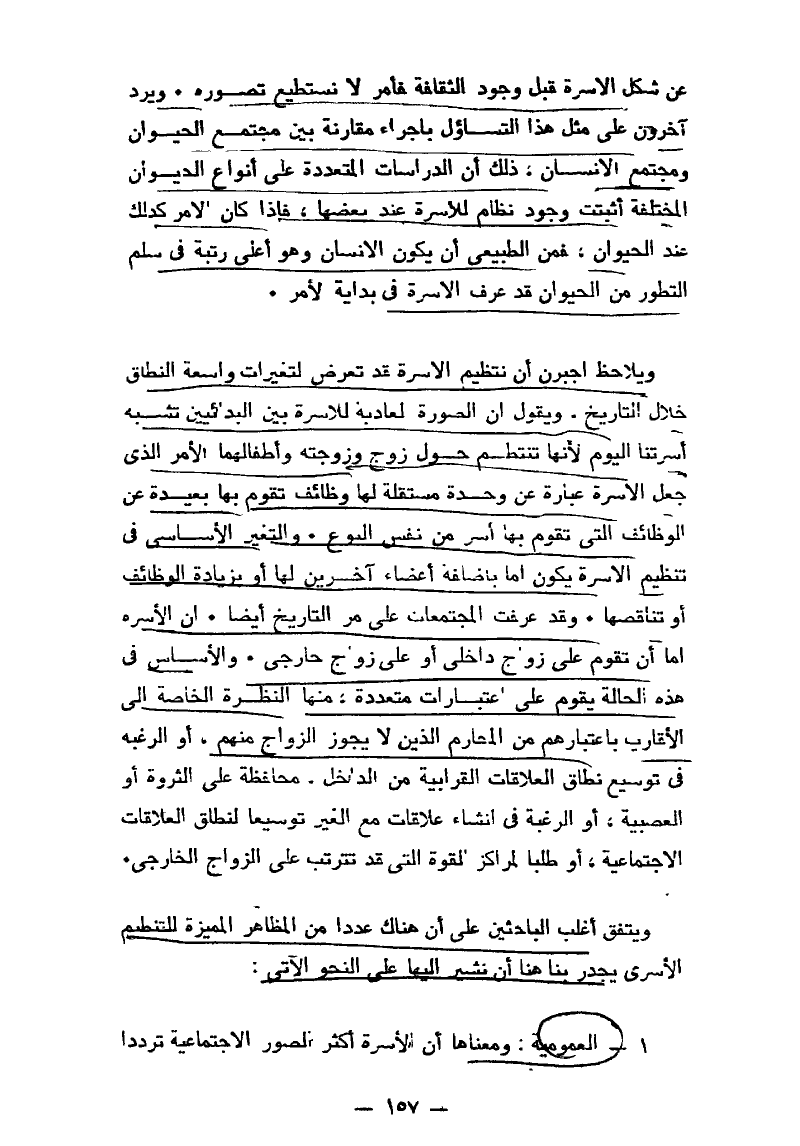 عن شكل الاسرة قبل وجود الثقافة فأمر لا نستطيع تصوره • ويرد
آخرون على مثل هذا التساؤل باجراء مقارنة بين مجتمع الحيوان
ومجتمع الانسان ، ذلك أن الدراسات المتعددة على أنواع الحيوان
المختلفة أثبتت وجود نظام للأسرة عند بعضها ، فاذا كان الامر كذلك
عند الحيوان ، فمن الطبيعى أن يكون الانسان وهو أعلى رتبة فى سلم
التطور من الحيوان قد عرف الاسرة فى بداية الأمر •
ويلاحظ اجبرن أن تنظيم الاسرة قد تعرض لتغيرات واسعة النطاق
خلال التاريخ . ويقول ان الصورة العادية للاسرة بين البدائيين تشبه
أسرتنا اليوم لأنها تنتظم حول زوج وزوجته وأطفالهما الأمر الذى
جعل الاسرة عبارة عن وحدة مستقلة لها وظائف تقوم بها بعيدة عن
الوظائف التى تقوم بها أسر من نفس النوع • والتغير الأساسى فى
تنظيم الاسرة يكون اما باضافة أعضاء آخرين لها أو بزيادة الوظائف
أو تناقصها • وقد عرفت المجتمعات على مر التاريخ أيضا • ان الأسره
اما أن تقوم على زواج داخلى أو على زواج خارجى • والأساس فى
هذه الحالة يقوم على اعتبارات متعددة ؛ منها النظرة الخاصة الى
الأقارب باعتبارهم من المحارم الذين لا يجوز الزواج منهم ، أو الرغبه
فى توسيع نطاق العلاقات القرابية من الداخل . محافظة على الثروة أو
العصبية ، أو الرغبة فى انشاء علاقات مع الغير توسيعا لنطاق العلاقات
الاجتماعية ، أو طلبا لمراكز القوة التى قد تترتب على الزواج الخارجى•
ويتفق أغلب الباحثين على أن هناك عددا من المظاهر المميزة للتنظيم
الأسرى يجدر بنا هنا أن نشير اليها على النحو الآتى :
١ — العمومية : ومعناها أن الأسرة أكثر الصور الاجتماعية ترددا
— ١٥٧ —